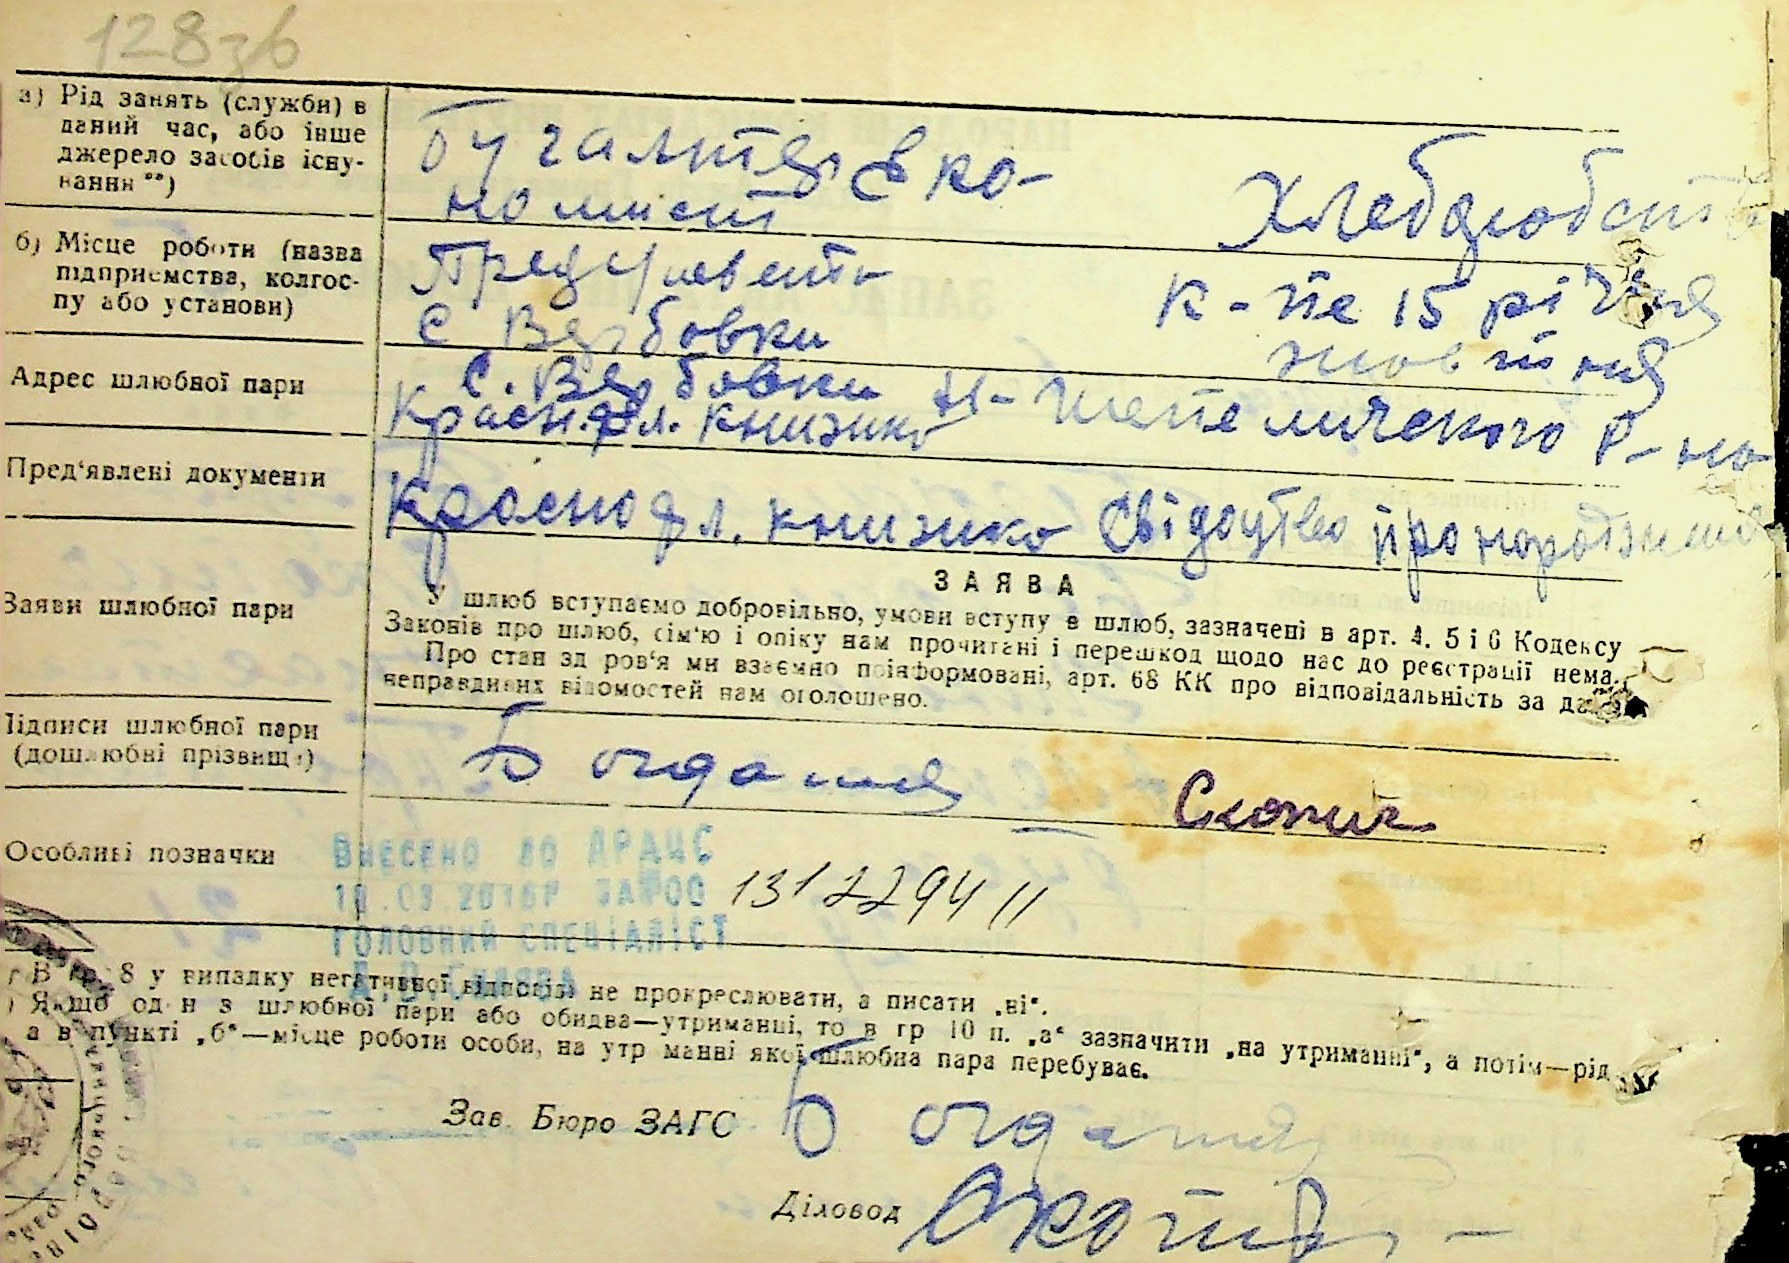 128 зв
а) Рід занять (служби) в
даний час, або інше
джерело засобів існу-
вання **)
Бугалтер Еко-
номист
Хлебороб
б) Місце роботи (назва
підприємства, колгос-
пу або установи)
с Вербовки
к-пе 15 річчя
жовтня
Адрес шлюбної пари
с. Вербовки Н-Шепеличского р-на
Красн.фл. книжка
Пред'явлені документи
Краснофл. книжка Свідоцтво про народження
Заяви шлюбної пари
ЗАЯВА
У шлюб вступаємо добровільно, умови вступу в шлюб, зазначені в арт. 4. 5 і 6 Кодексу
Законів про шлюб, сім'ю і опіку нам прочитані і перешкод щодо нас до реєстрації нема.
Про стан здоров'я ми взаємно поінформовані, арт. 68 КК про відповідальність за дачу
неправдивих відомостей нам оголошено.
Підписи шлюбної пари
(дошлюбні прізвища)
Богданя
Скопич
Особливі позначки
Внесено до ДРАЦС
ГОЛОВНИЙ СПЕЦІАЛІСТ
13122941
В гр. 8 у випадку негативної відповіді не прокреслювати, а писати „ні“.
Якщо один з шлюбної пари або обидва—утриманці, то в гр 10 п. „а“ зазначити „на утриманні“, а потім—рід
а в пункті „б“—місце роботи особи, на утриманні якої шлюбна пара перебуває.
Зав. Бюро ЗАГС Богданя
Діловод